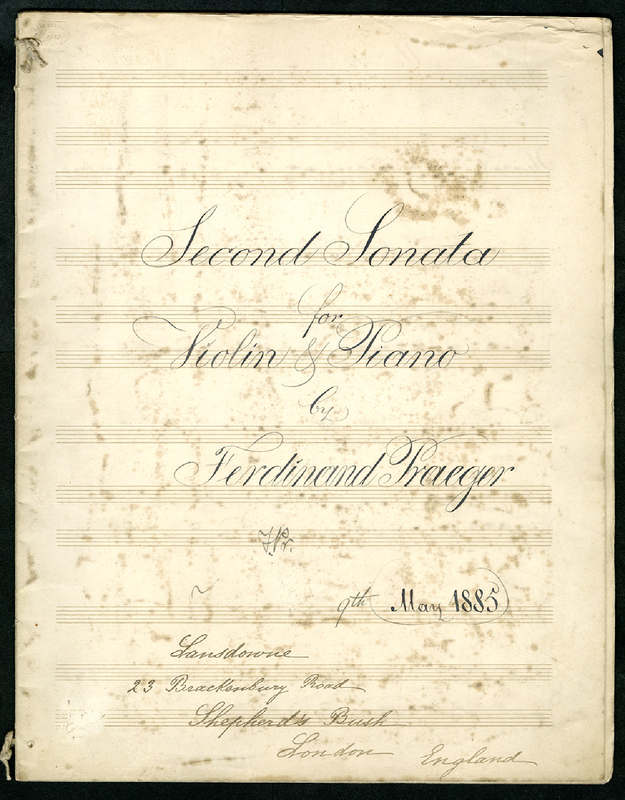 Second Sonata
for
Violin & Piano
by
Ferdinand Praeger
F.Pr.
9th May 1885
Lansdowne
23 Brackenbury Road
Shepherd's Bush
London England